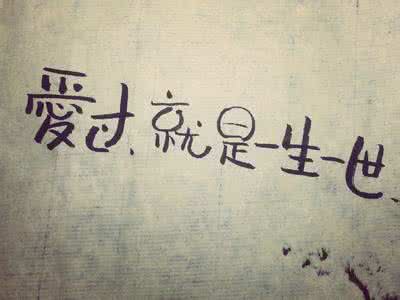 愛过、就是一生一世